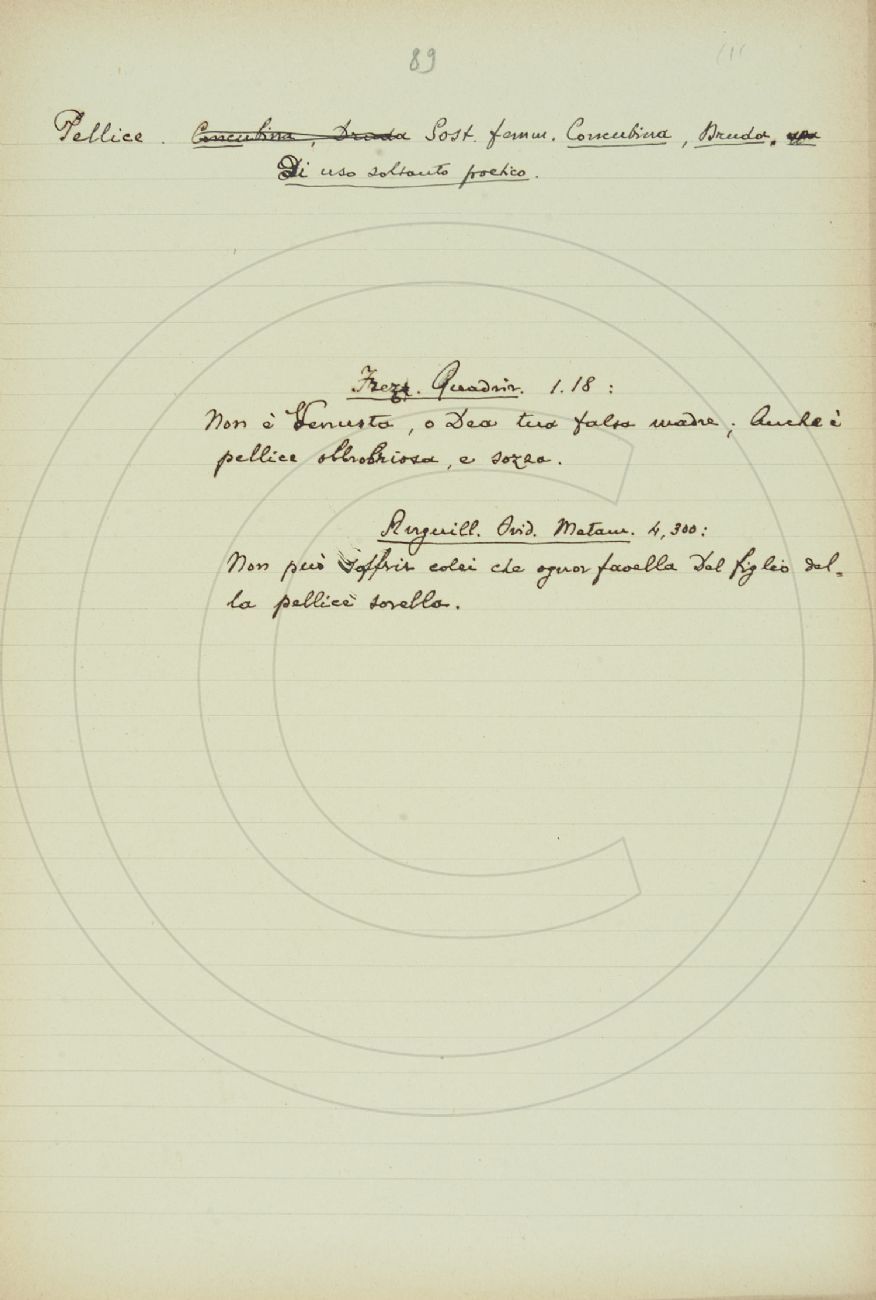 89
Pellice. Concubina, Druda Sost. femm. Concubina, Druda.
Di uso soltanto poetico.
Frezz. Quadrir. 1.18:
Non è Venusta, o Dea tua falsa madre; Anche è
pellice obbrobriosa, e sozza.
Anguill. Ovid. Metam. 4,300:
Non può soffrir colei che ognor favella Del figlio del-
la pellice sorella.